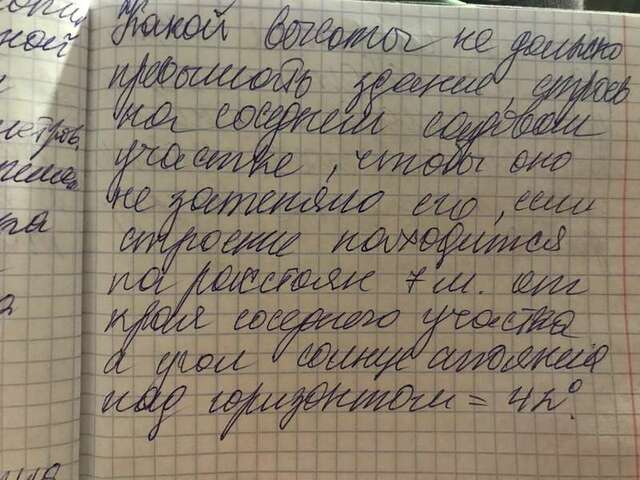 ори
ной
Какой высоты не должно
превышать здание, строев
на соседнем садовом
етров,
участке, чтобы оно
не затеняло его, если
строение находится
на расстоян 7 м. от
края соседнего участка
а угол солнце стояния
над горизонтом = 42°.